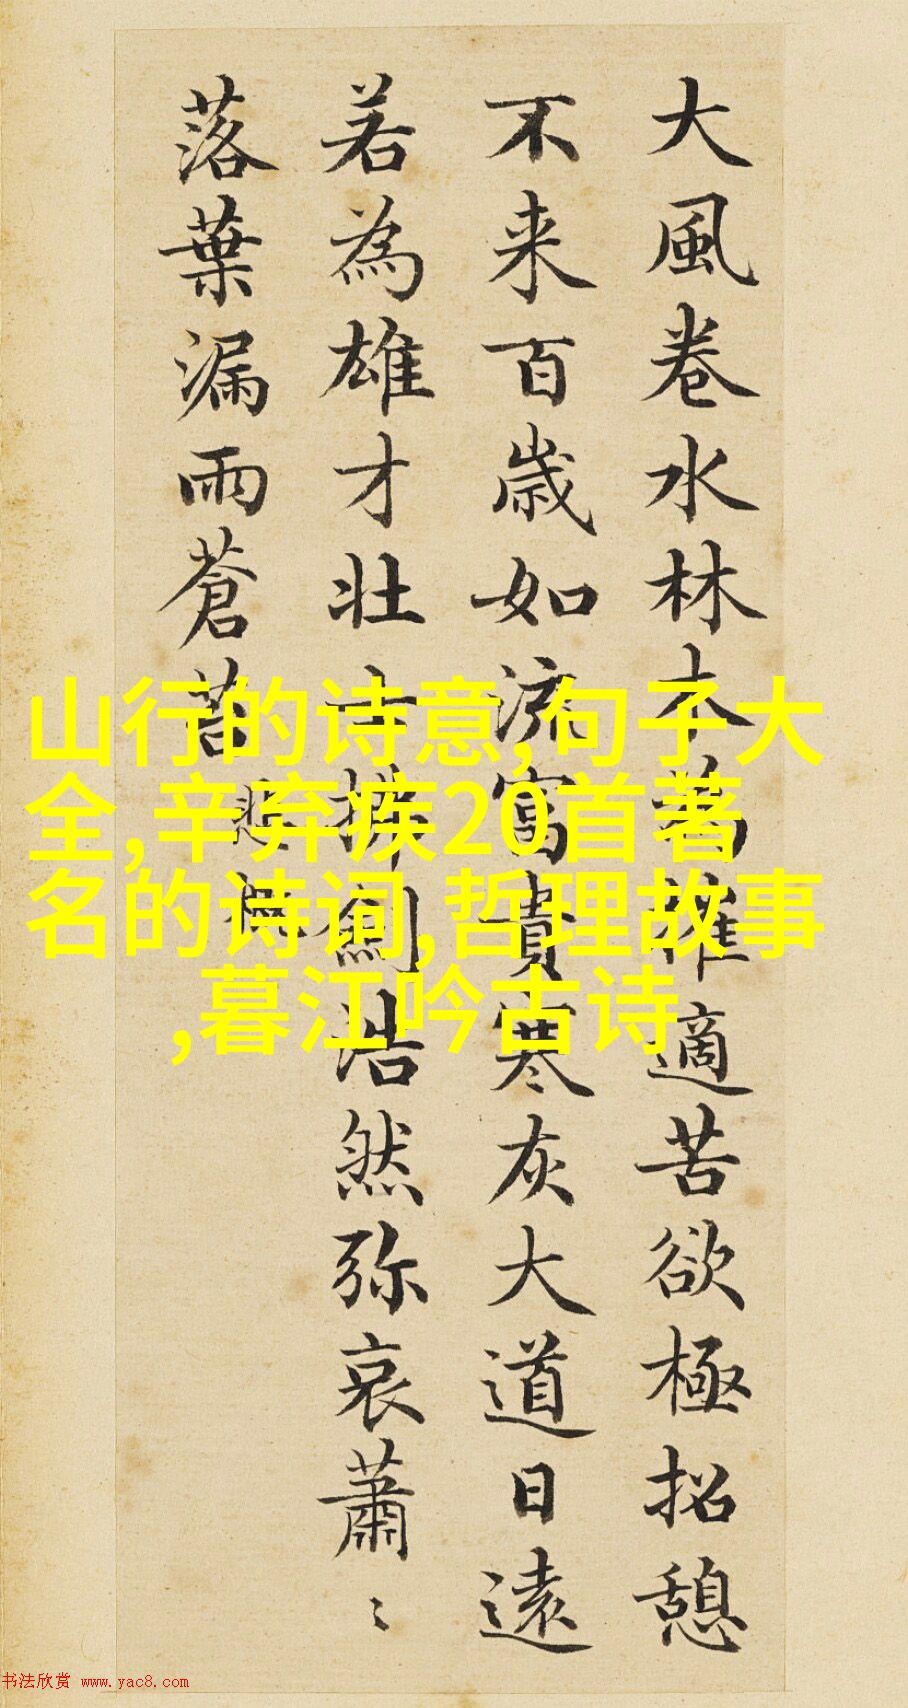 大風卷水林木為摧適苦欲極招憩
不来百歳如流富貴寒灰大道日遠
若為雄才壯士拂劍浩然弥哀蕭〻
落葉漏雨蒼苔
悲慨
山行的诗意,句子大
全,辛弃疾20首著
名的诗词,哲理故事
,暮江吟古诗
书法欣赏 www.yac8.com